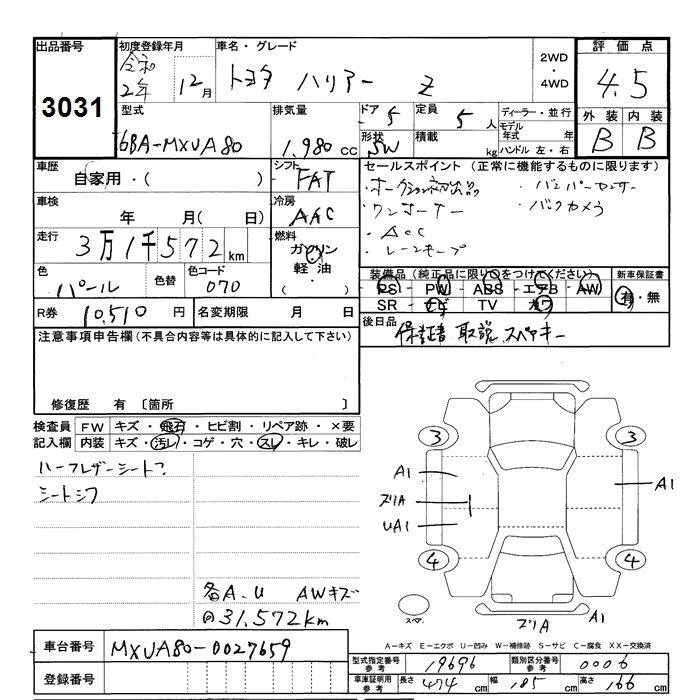 出品番号 初度登録年月 車名・グレード 2WD・4WD 評価点
3031 令和2年 12月 トヨタ ハリアー Z 4.5
型式 排気量 ドア 5 定員 5人 ディーラー・並行 外装 内装
6BA-MXUA80 1.980cc 形状 SW 積載 kg モデル年式 年 ハンドル 左・右 B B
車歴 自家用・( ) シフト FAT セールスポイント (正常に機能するものに限ります)
車検 年 月( 日) 冷房 AAC
・オークション初出品
・ワンオーナー
・ACC
・レーンキープ
・バックカメラ
走行 3万1千572km 燃料 ガソリン 軽油・( )
色 パール 色替 色コード 070
装備品(純正品に限り○をつけてください) 新車保証書
PS PW ABS エアB AW 有・無
SR ナビ TV カワ
R券 10,510円 名変期限 月 日
後日品 保証書 取説 スペアキー
注意事項申告欄(不具合内容等は具体的に記入して下さい)
修復歴 有〔箇所 〕
検査員 FW キズ・飛石・ヒビ割・リペア跡・×要
記入欄 内装 キズ・汚レ・コゲ・穴・スレ・キレ・破レ
ハーフレザーシート
シートシワ
各A.U AWキズ
31,572km
3 3
A1
A1
ズリA
UA1
4 4
スペア
ズリA A1
A-キズ E-エクボ U-凹み W-補修跡 S-サビ C-腐食 XX-交換済
車台番号 MXUA80-0027659
型式指定番号 参考 19696 類別区分番号 参考 0006
登録番号
車庫証明用 参考 長さ 474cm 幅 185cm 高さ 166cm